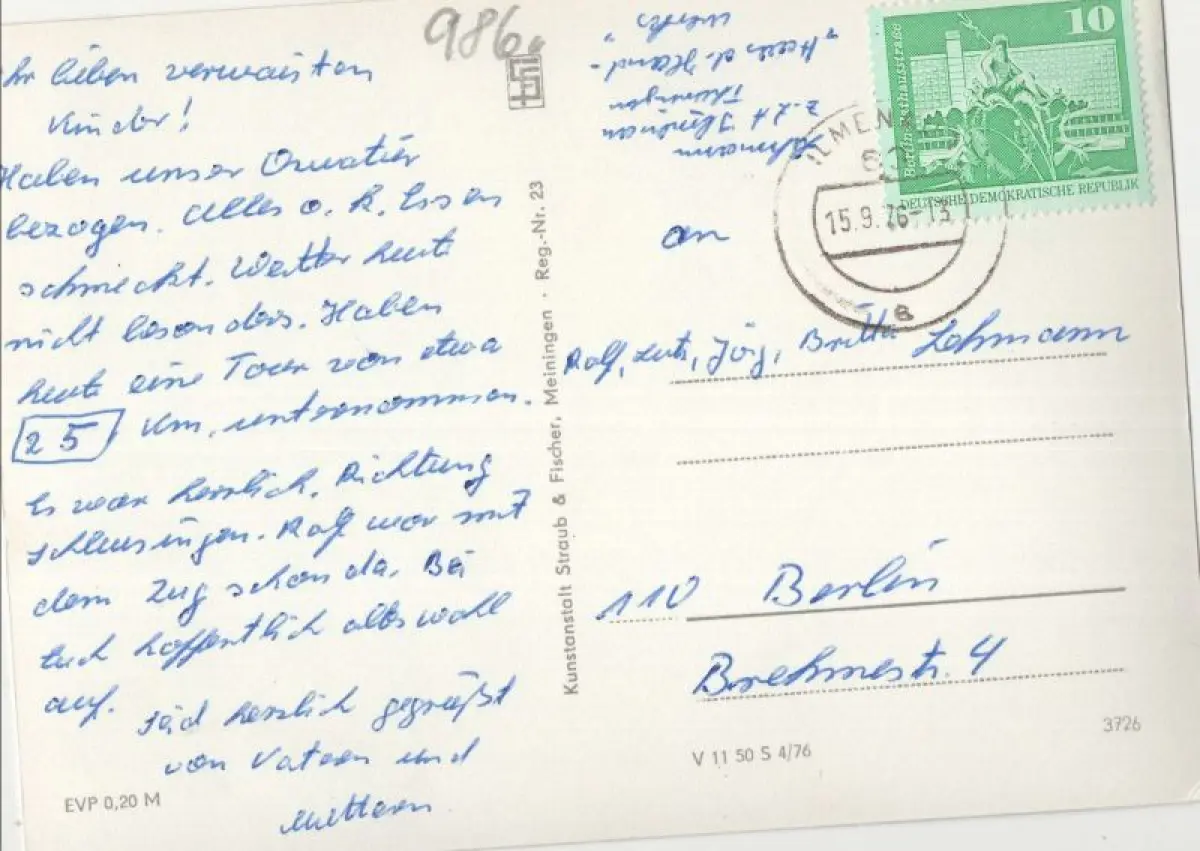 Ihr lieben verwaisten
Kinder!
Haben unser Quatier
bezogen. Alles o. k. Essen
schmeckt. Wetter heute
nicht besonders. Haben
heute eine Tour von etwa
25 km. unternommen.
Es war herrlich. Richtung
Schleusingen. Ralf war mit
dem Zug schon da. Bei
Euch hoffentlich alles wohl
auf. Seid herzlich gegrüßt
von Vatern und
Muttern
EVP 0,20 M
986
Kunstanstalt Straub & Fischer, Meiningen · Reg.-Nr. 23
Lohmann
z. Zt. Ilmenau
Thüringen
"Haus d. Hand-
werks"
10
Berlin Rathausstraße
DEUTSCHE DEMOKRATISCHE REPUBLIK
ILMENAU
15.9.76-13
a
an
Ralf, Lutz, Jörg, Britta Lohmann
110 Berlin
Brehmestr. 4
V 11 50 S 4/76
3726